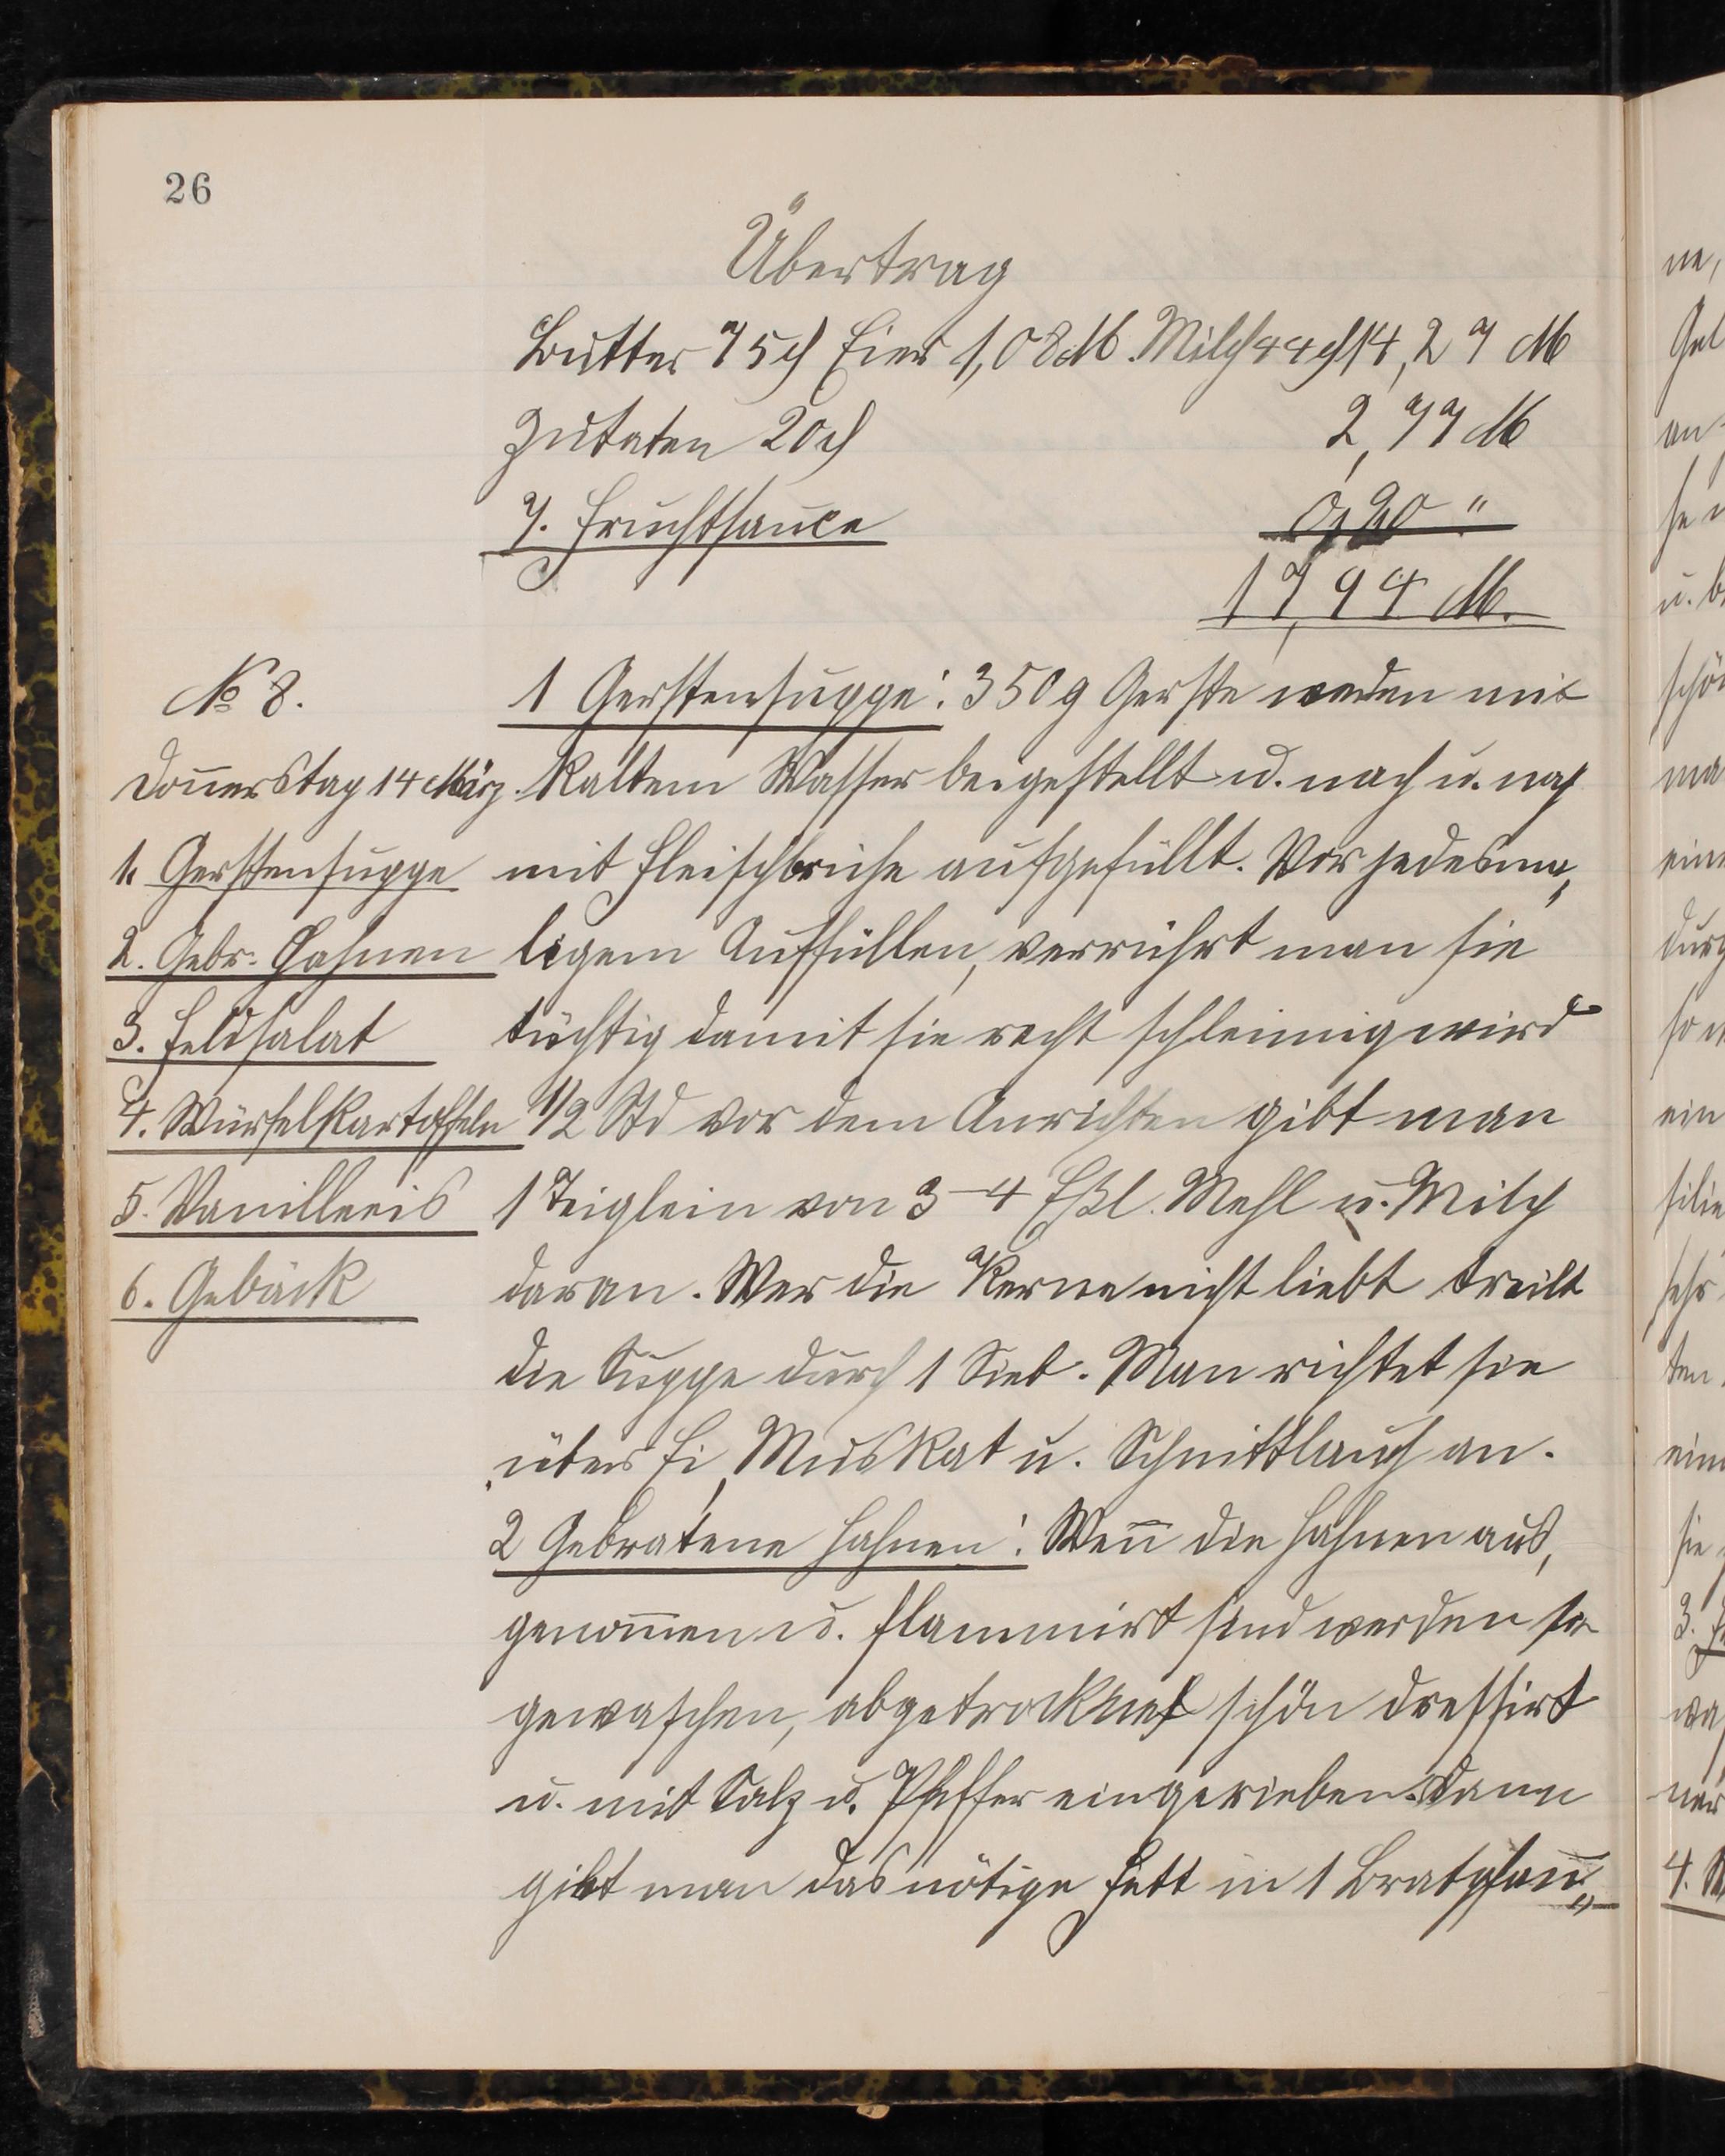 26
Übertrag
Butter 75 ₰ Eier 1,08 M. Milch 44 ₰ 14,27 M
Zutaten 20 ₰ 2,77 M
7. Fruchtsauce 0,90 "
17,94 M.
№ 8.
Donnerstag 14 März.
1. Gerstensuppe
2. Gebr. Hahnen
3. Feldsalat
4. Würfelkartoffeln
5. Vanilleeis
6. Gebäck
1 Gerstensuppe: 350 g Gerste werden mit
kaltem Wasser beigestellt u. nach u. nach
mit Fleischbrühe aufgefüllt. Vor jedesma,
ligem Auffüllen, verrührt man sie
tüchtig damit sie recht schleimig wird
1/2 Std vor dem Anrichten gibt man
1 Teiglein von 3-4 Eßl. Mehl u. Milch
daran. Wer die Kerne nicht liebt treibt
die Suppe durch 1 Sieb. Man richtet sie
über Ei, Muskat u. Schnittlauch an.
2 Gebratene Hahnen: Wen̄ die Hahnen aus,
genom̄en u. flammirt sind werden sie
gewaschen, abgetrocknet schön dressirt
u. mit Salz u. Pfeffer eingerieben. Dann
gibt man das nötige Fett in 1 Bratpfan̄„